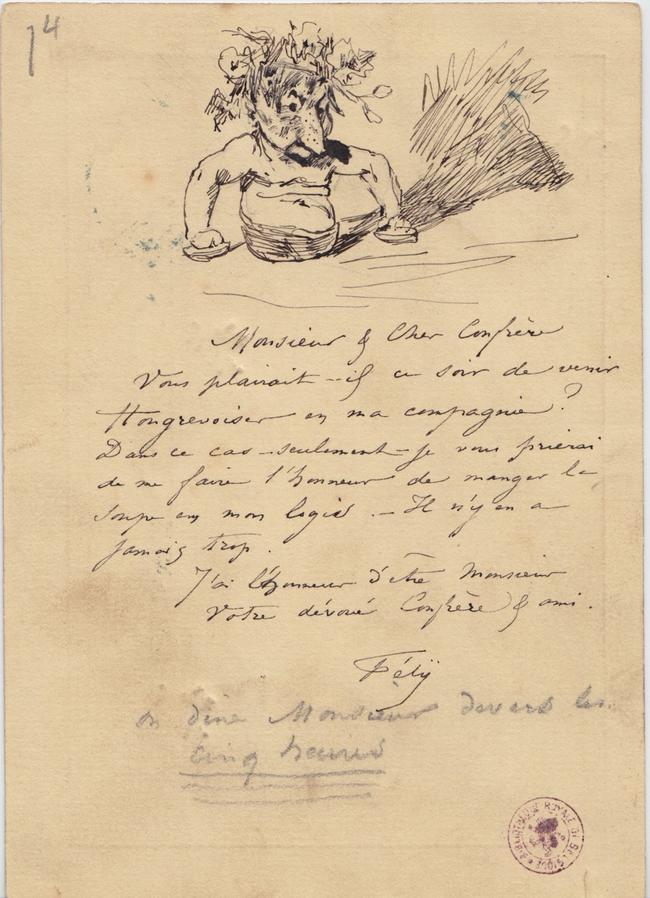 14
Monsieur & Cher Confrère
Vous plairait-il ce soir de venir
Hongrevoiser en ma compagnie ?
Dans ce cas - seulement - je vous prierai
de me faire l'honneur de manger la
soupe en mon logis . - Il n'y en a
jamais trop .
J'ai l'honneur d'être Monsieur
Votre dévoué Confrère & ami .
Fély
on dine Monsieur devers les
cinq heures
BIBLIOTHÈQUE ROYALE DE BELGIQUE